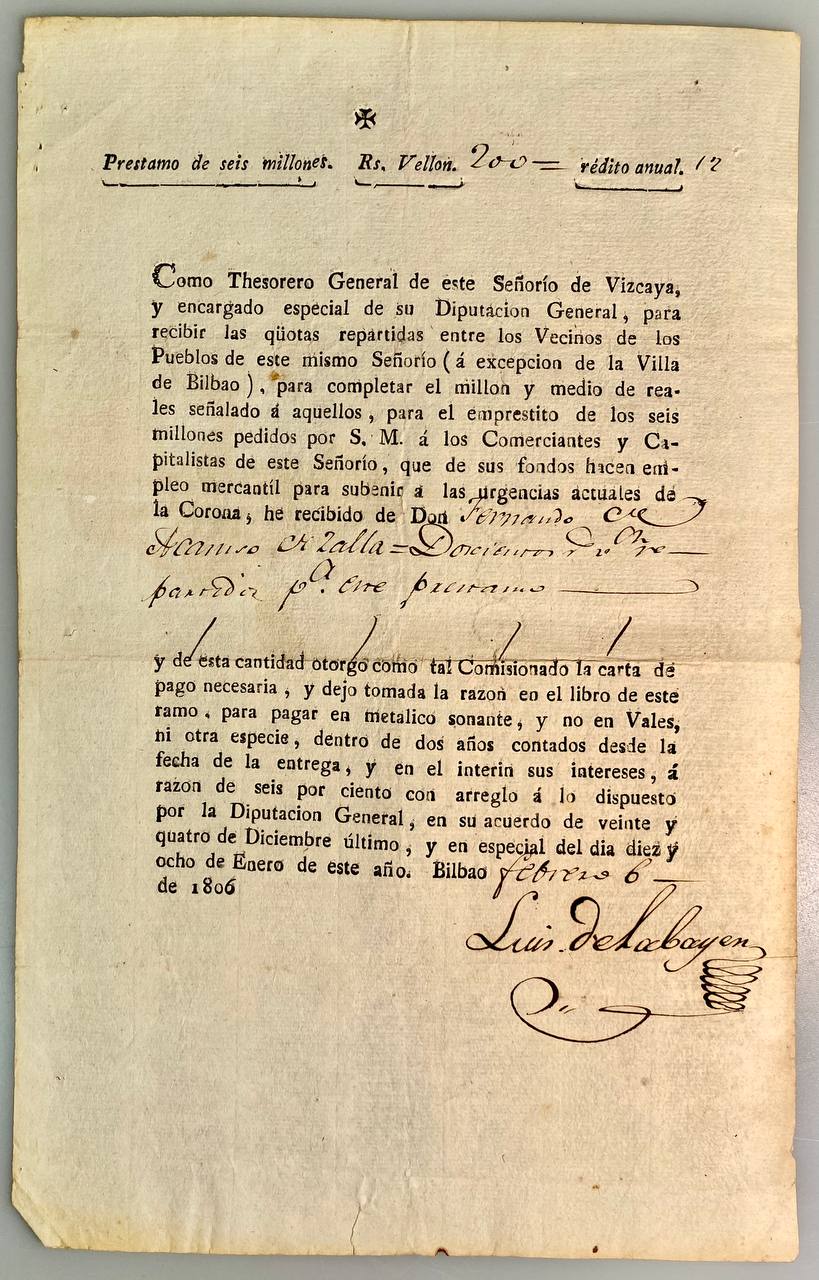 ✠
Prestamo de seis millones. Rs. Vellon. 200= rédito anual. 12
Como Thesorero General de este Señorío de Vizcaya,
y encargado especial de su Diputacion General, para
recibir las qüotas repartidas entre los Vecinos de los
Pueblos de este mismo Señorío (á excepcion de la Villa
de Bilbao), para completar el millon y medio de rea-
les señalado á aquellos, para el emprestito de los seis
millones pedidos por S. M. á los Comerciantes y Ca-
pitalistas de este Señorío, que de sus fondos hacen em-
pleo mercantíl para subenir á las urgencias actuales de
la Corona, he recibido de Don Fernando de
Zalla = Doscientos rs vn re-
partidos pa. este prestamo
y de esta cantidad otorgo como tal Comisionado la carta de
pago necesaria, y dejo tomada la razon en el libro de este
ramo, para pagar en metalico sonante, y no en Vales,
ni otra especie, dentro de dos años contados desde la
fecha de la entrega, y en el interin sus intereses, á
razon de seis por ciento con arreglo á lo dispuesto
por la Diputacion General, en su acuerdo de veinte y
quatro de Diciembre último, y en especial del dia diez y
ocho de Enero de este año. Bilbao febrero 6
de 1806
Luis de Labayen